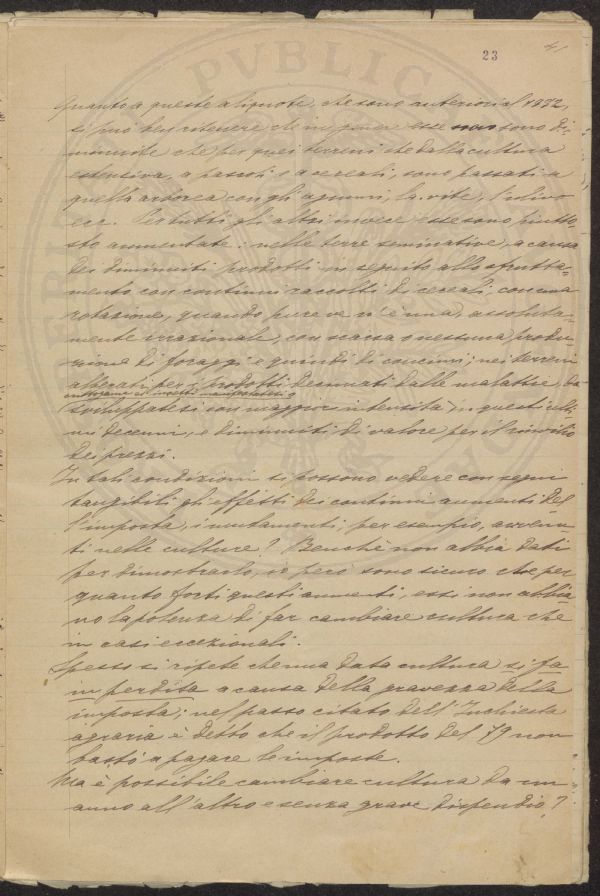 23
Quanto a queste aliquote, che sono anteriori al 1832,
si può ben ritenere che in genere esse sono di-
minuite che per quei terreni che dalla cultura
estensiva, a pascoli o a cereali, sono passati a
quella arborea con gli agrumi, la vite, l'ulivo
ecc. Per tutti gli altri invece esse sono piutto-
sto aumentate: nelle terre seminative, a causa
dei diminuiti prodotti in seguito allo sfrutta-
mento con continui raccolti di cereali, con una
rotazione, quando pure ve n'è una, assoluta-
mente irrazionale, con scarsa o nessuna produ-
zione di foraggi e quindi di concimi; nei terreni
alberati per i prodotti decimati dalle malattie,
sviluppatesi con maggior intensità in questi ulti-
mi decenni, e diminuiti di valore per il rinvilio
dei prezzi.
In tali condizioni si possono vedere con segni
tangibili gli effetti dei continui aumenti del-
l'imposta, i mutamenti, per esempio, avvenu-
ti nelle culture? Benchè non abbia dati
per dimostrarlo, io però sono sicuro che per
quanto forti questi aumenti, essi non abbia-
no la potenza di far cambiare cultura che
in casi eccezionali.
Spesso si ripete che una data cultura si fa
in perdita a causa della gravezza della
imposta; nel passo citato dell'Inchiesta
agraria è detto che il prodotto del 79 non
bastò a pagare le imposte.
Ma è possibile cambiare cultura da un
anno all'altro e senza grave dispendio?